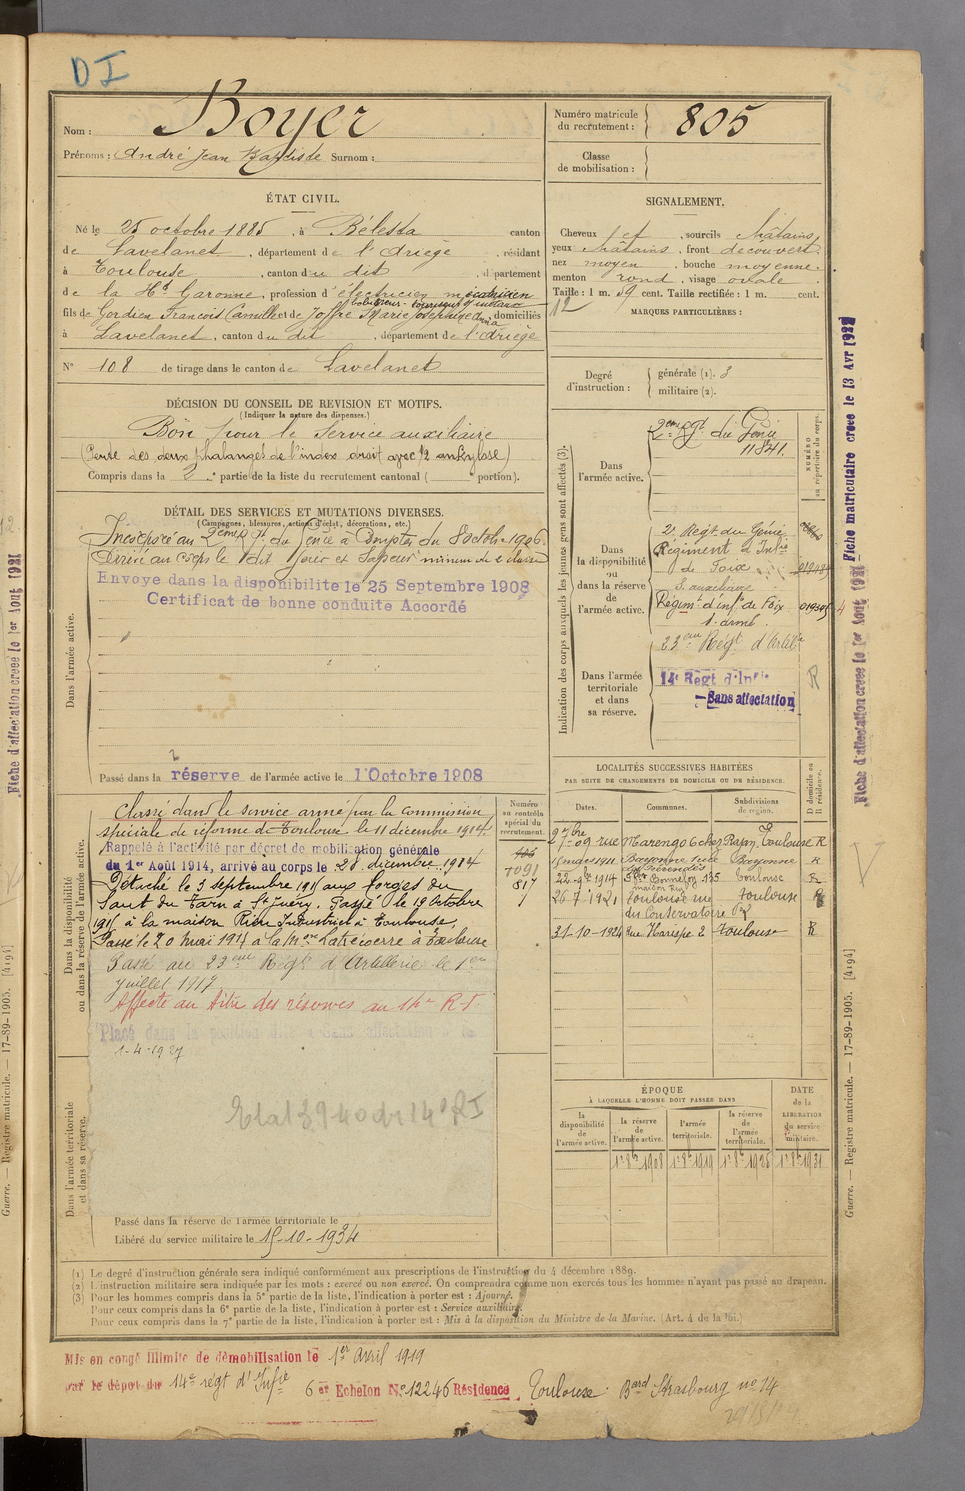 D I
Nom : Boyer
Prénoms : André Jean Baptiste Surnom :
Numéro matricule
du recrutement : 805
Classe
de mobilisation :
ÉTAT CIVIL.
Né le 25 octobre 1885, à Bélesta canton
de Lavelanet, département de l'Ariège, résidant
à Toulouse, canton du dit, département
de la Hte Garonne, profession d'électricien mécanicien
bobineur
fils de Gordien François Camille et de Joffre Marie Josephine Anna, domiciliés
à Lavelanet, canton du dit, département de l'Ariège
N° 108 de tirage dans le canton de Lavelanet
SIGNALEMENT.
Cheveux et, sourcils châtains
yeux châtains, front découvert
nez moyen, bouche moyenne
menton rond, visage ovale
Taille : 1 m. 59 cent. Taille rectifiée : 1 m. cent.
12
MARQUES PARTICULIÈRES :
Degré
d'instruction :
générale (1). 3
militaire (2).
DÉCISION DU CONSEIL DE REVISION ET MOTIFS.
(Indiquer la nature des dispenses.)
Bon pour le service auxiliaire
(Perte des deux phalanges de l'index droit avec 1/2 ankylose)
Compris dans la 2e partie de la liste du recrutement cantonal ( portion).
DÉTAIL DES SERVICES ET MUTATIONS DIVERSES.
(Campagnes, blessures, actions d'éclat, décorations, etc.)
Dans l'armée active.
Incorporé au 2eme Rgt du Génie à compter du 8 octobre 1906.
Arrivé au corps le dit jour et Sapeur mineur de 2e classe
Envoye dans la disponibilite le 25 Septembre 1908
Certificat de bonne conduite Accordé
Passé dans la réserve de l'armée active le 1 Octobre 1908
Indication des corps auxquels les jeunes gens sont affectés (3).
NUMÉRO
au répertoire du corps.
Dans
l'armée active.
2eme Rgt du Génie
11841.
Dans
la disponibilité
ou
dans la réserve
de
l'armée active.
2e Régt du Génie
Régiment d'Infie
de Foix
S. auxiliaire
Régimt d'inf. de Foix 01930
S. armé
Dans l'armée
territoriale
et dans
sa réserve.
23eme Régt d'Artie
14e Régt d'Infie
Sans affectation
R
Dans la disponibilité
ou dans la réserve de l'armée active.
Numéro
au contrôle
spécial du
recrutement.
7091
817
Classé dans le service armé par la commission
spéciale de réforme de Toulouse le 11 décembre 1914.
Rappelé à l'activité par décret de mobilisation générale
du 1er Août 1914, arrivé au corps le 28 décembre 1914
Détaché le 3 septembre 1915 aux forges du
Saut du Tarn à St Juéry. Passé le 19 Octobre
1915 à la maison Industriel à Toulouse,
Passé le 20 mai 1917 à la Mon Latécoère à Toulouse
Passé au 23eme Régt d'Artillerie le 1er
juillet 1917
Affecté au titre des réserves au 14e R.I.
Placé dans la position dite « Sans affectation » le
1-4-1927
Etat 3940 du 14e RI
Dans l'armée territoriale
et dans sa réserve.
Passé dans la réserve de l'armée territoriale le
Libéré du service militaire le 15-10-1934
LOCALITÉS SUCCESSIVES HABITÉES
PAR SUITE DE CHANGEMENTS DE DOMICILE OU DE RÉSIDENCE.
D domicile ou
R résidence.
Dates. Communes. Subdivisions
de région.
2 9bre 09 rue Marengo 6 chez Toulouse R
15 mars 1911 Bayonne Bayonne R
22-9bre 1914 135 Toulouse R
26-7-1921 Toulouse rue Toulouse R
du Conservatoire
31-10-1924 Rue Harispe 2 Toulouse R
ÉPOQUE
À LAQUELLE L'HOMME DOIT PASSER DANS
DATE
de la
LIBÉRATION
du service
militaire.
la
disponibilité
de
l'armée active.
la réserve
de
l'armée active.
l'armée
territoriale.
la réserve
de
l'armée
territoriale.
1er 8bre 1908 1er 8bre 1919 1er 8bre 1925 1er 8bre 1931
(1) Le degré d'instruction générale sera indiqué conformément aux prescriptions de l'instruction du 4 décembre 1889.
(2) L'instruction militaire sera indiquée par les mots : exercé ou non exercé. On comprendra comme non exercés tous les hommes n'ayant pas passé au drapeau.
(3) Pour les hommes compris dans la 5e partie de la liste, l'indication à porter est : Ajourné.
Pour ceux compris dans la 6e partie de la liste, l'indication à porter est : Service auxiliaire.
Pour ceux compris dans la 7e partie de la liste, l'indication à porter est : Mis à la disposition du Ministre de la Marine. (Art. 4 de la loi.)
Mis en congé illimité de démobilisation le 1er avril 1919
par le dépôt du 14e régt d'Infie 6er Echelon N° 12246 Résidence Toulouse Bard Strasbourg no 14
Fiche matriculaire creee le 13 Avr 1922
Fiche d'affectation creee le 1er Aout 1921
Guerre. — Registre matricule. — 17-89-1905. [4194]
Fiche d'affectation creee le 1er Aout 1921
Guerre. — Registre matricule. — 17-89-1905. [4194]